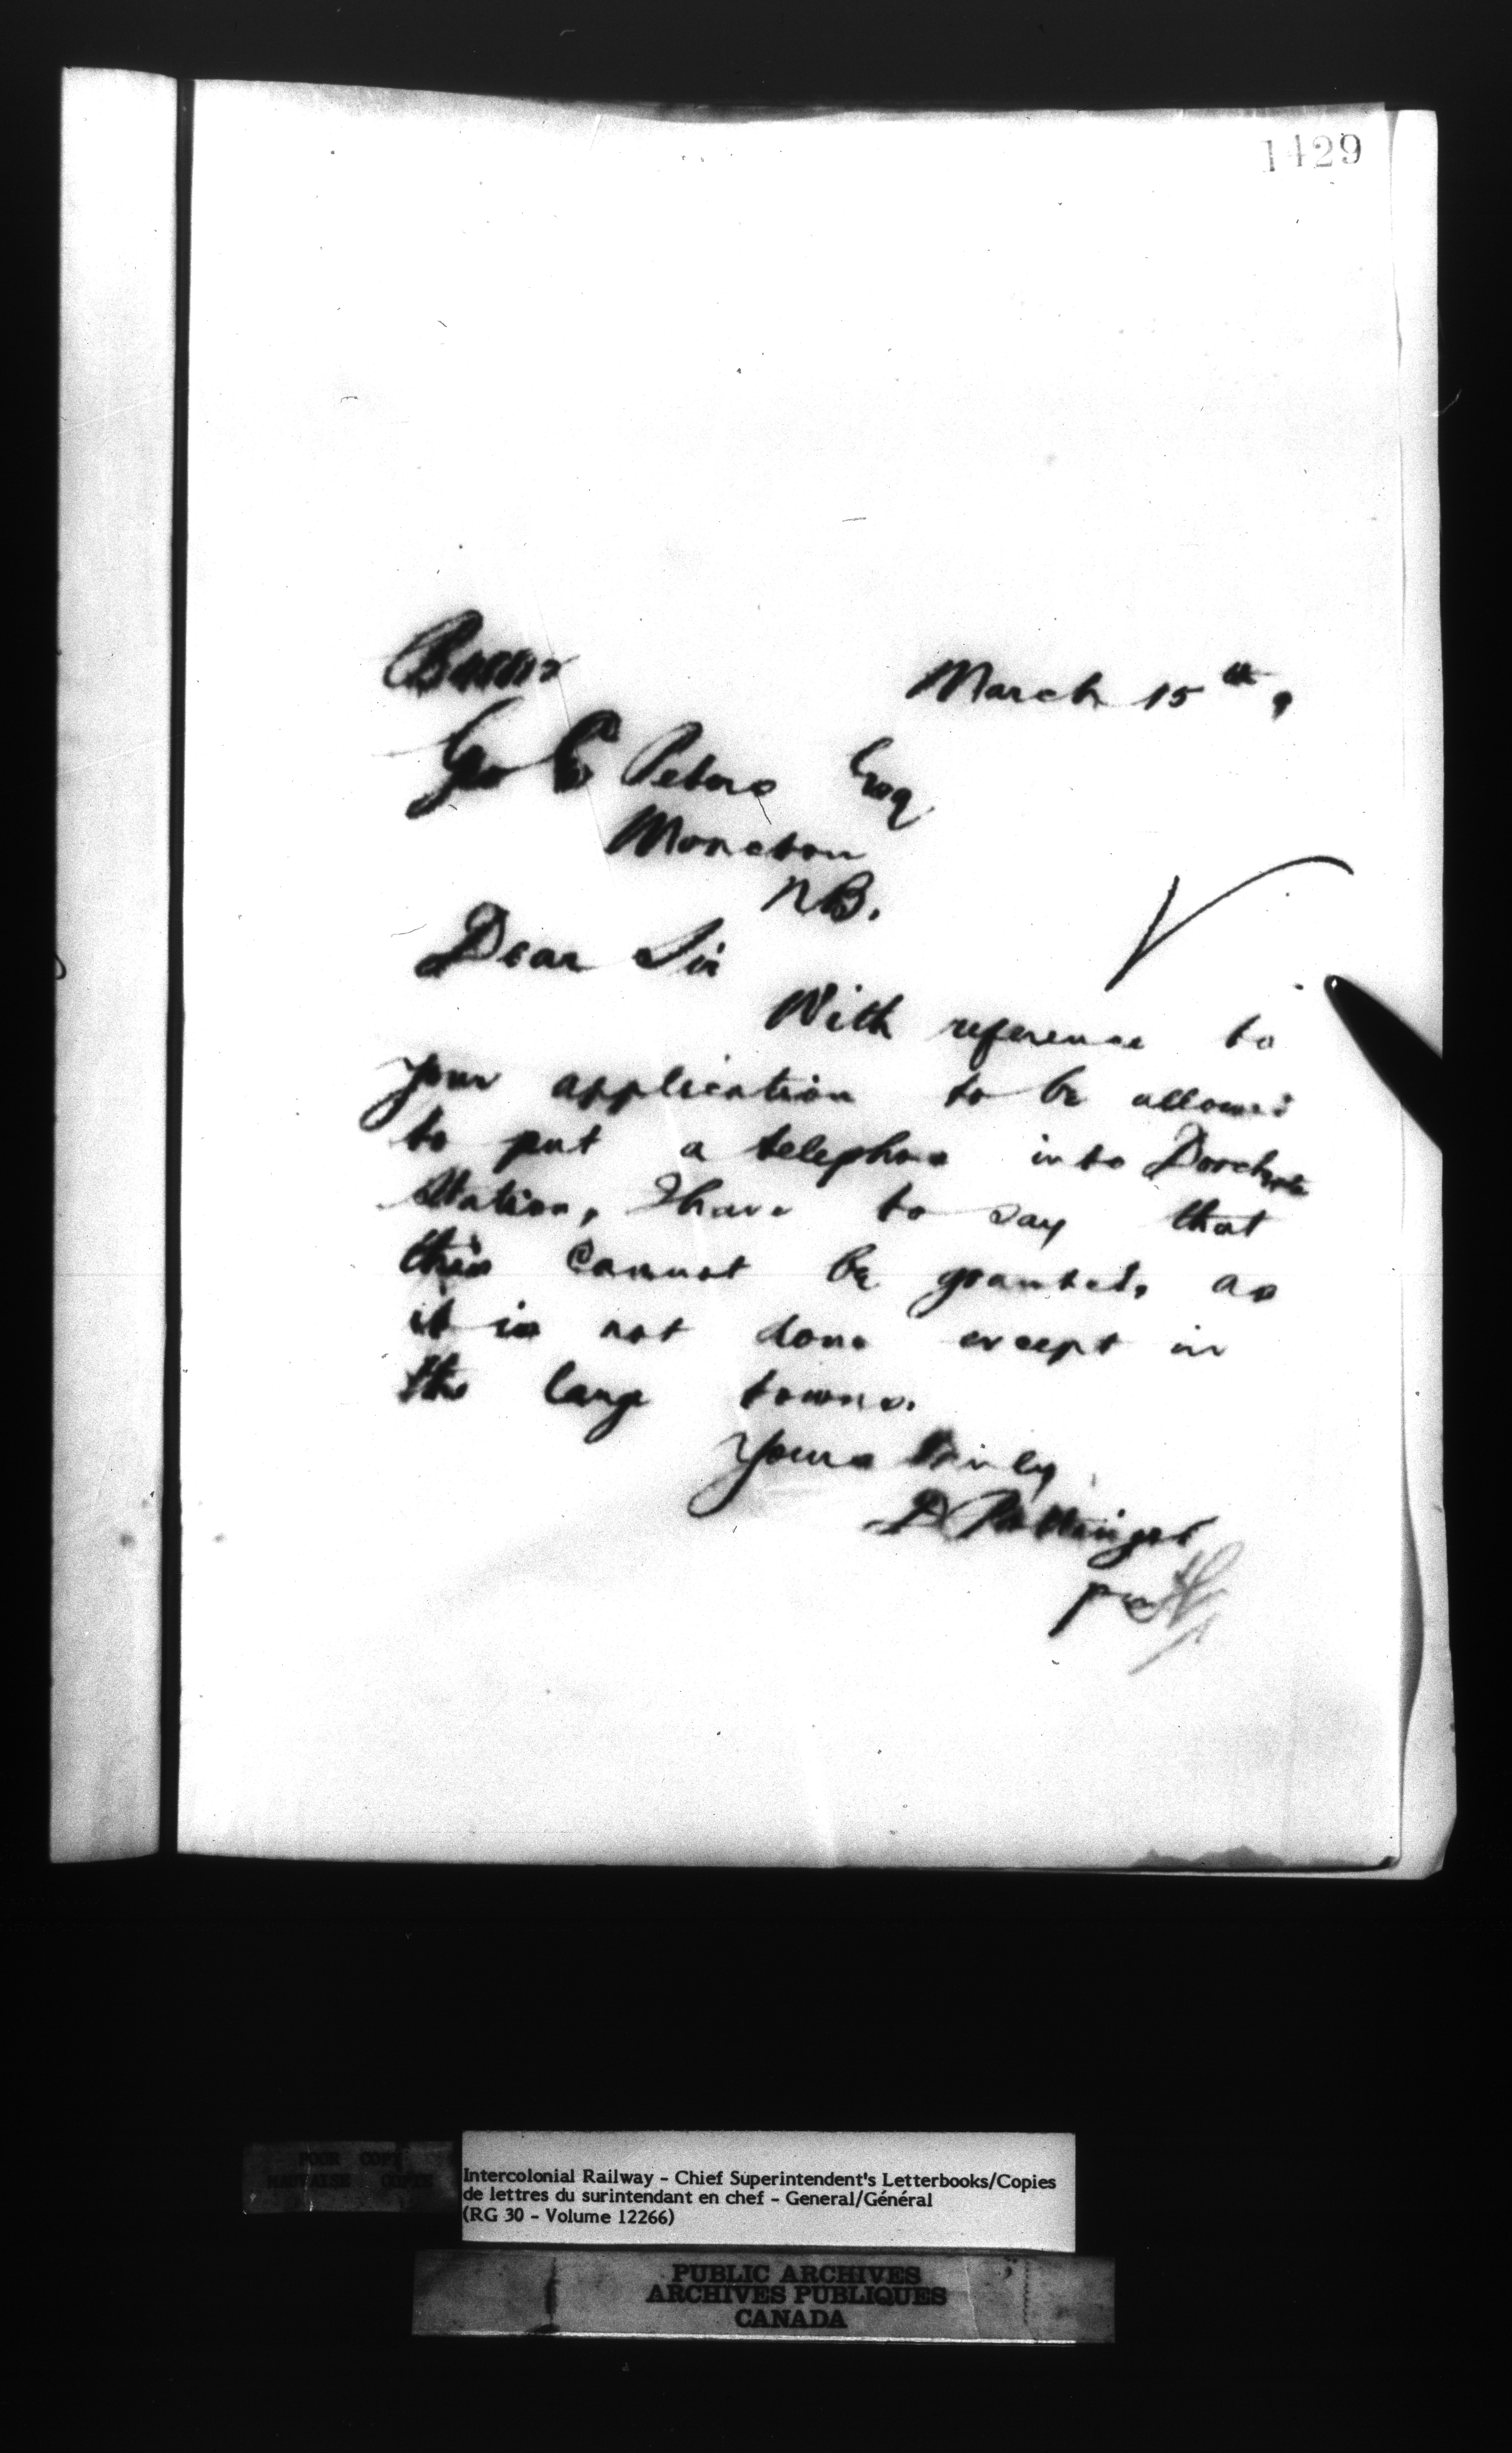 1429
March 15th, 9
Geo C Peters Esq
Moncton
NB.
Dear Sir
With reference to
your application to be allowed
to put a telephone into Dorchester
Station, I have to say that
this cannot be granted, as
it is not done except in
the large towns.
Yours truly
D Pottinger
per
POOR COPY
MAUVAISE COPIE
Intercolonial Railway - Chief Superintendent's Letterbooks/Copies
de lettres du surintendant en chef - General/Général
(RG 30 - Volume 12266)
PUBLIC ARCHIVES
ARCHIVES PUBLIQUES
CANADA